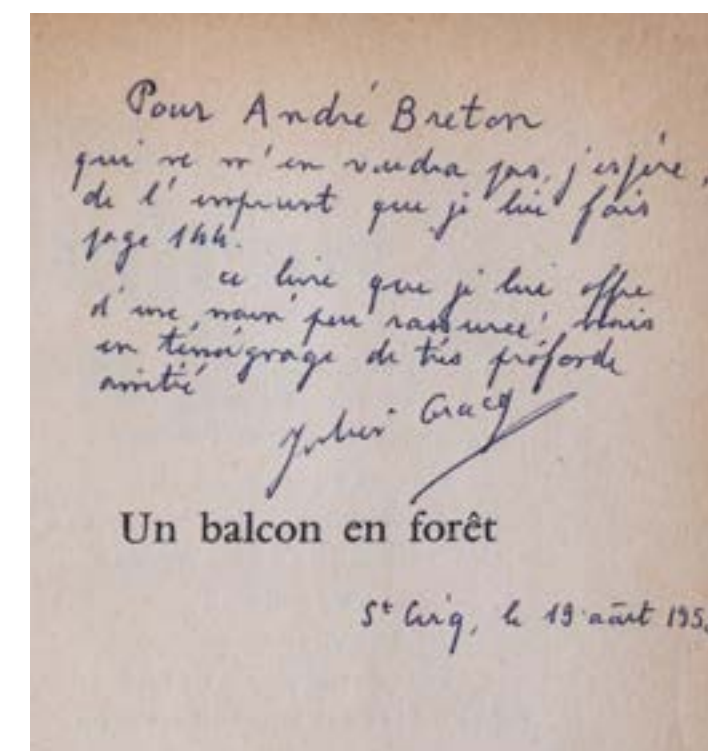 Pour André Breton
qui ne m'en voudra pas, j'espère,
de l'emprunt que je lui fais
page 144.
ce livre que je lui offre
d'une main peu rassurée, mais
en témoignage de très profonde
amitié
Julien Gracq
Un balcon en forêt
St Cirq, le 19 août 195